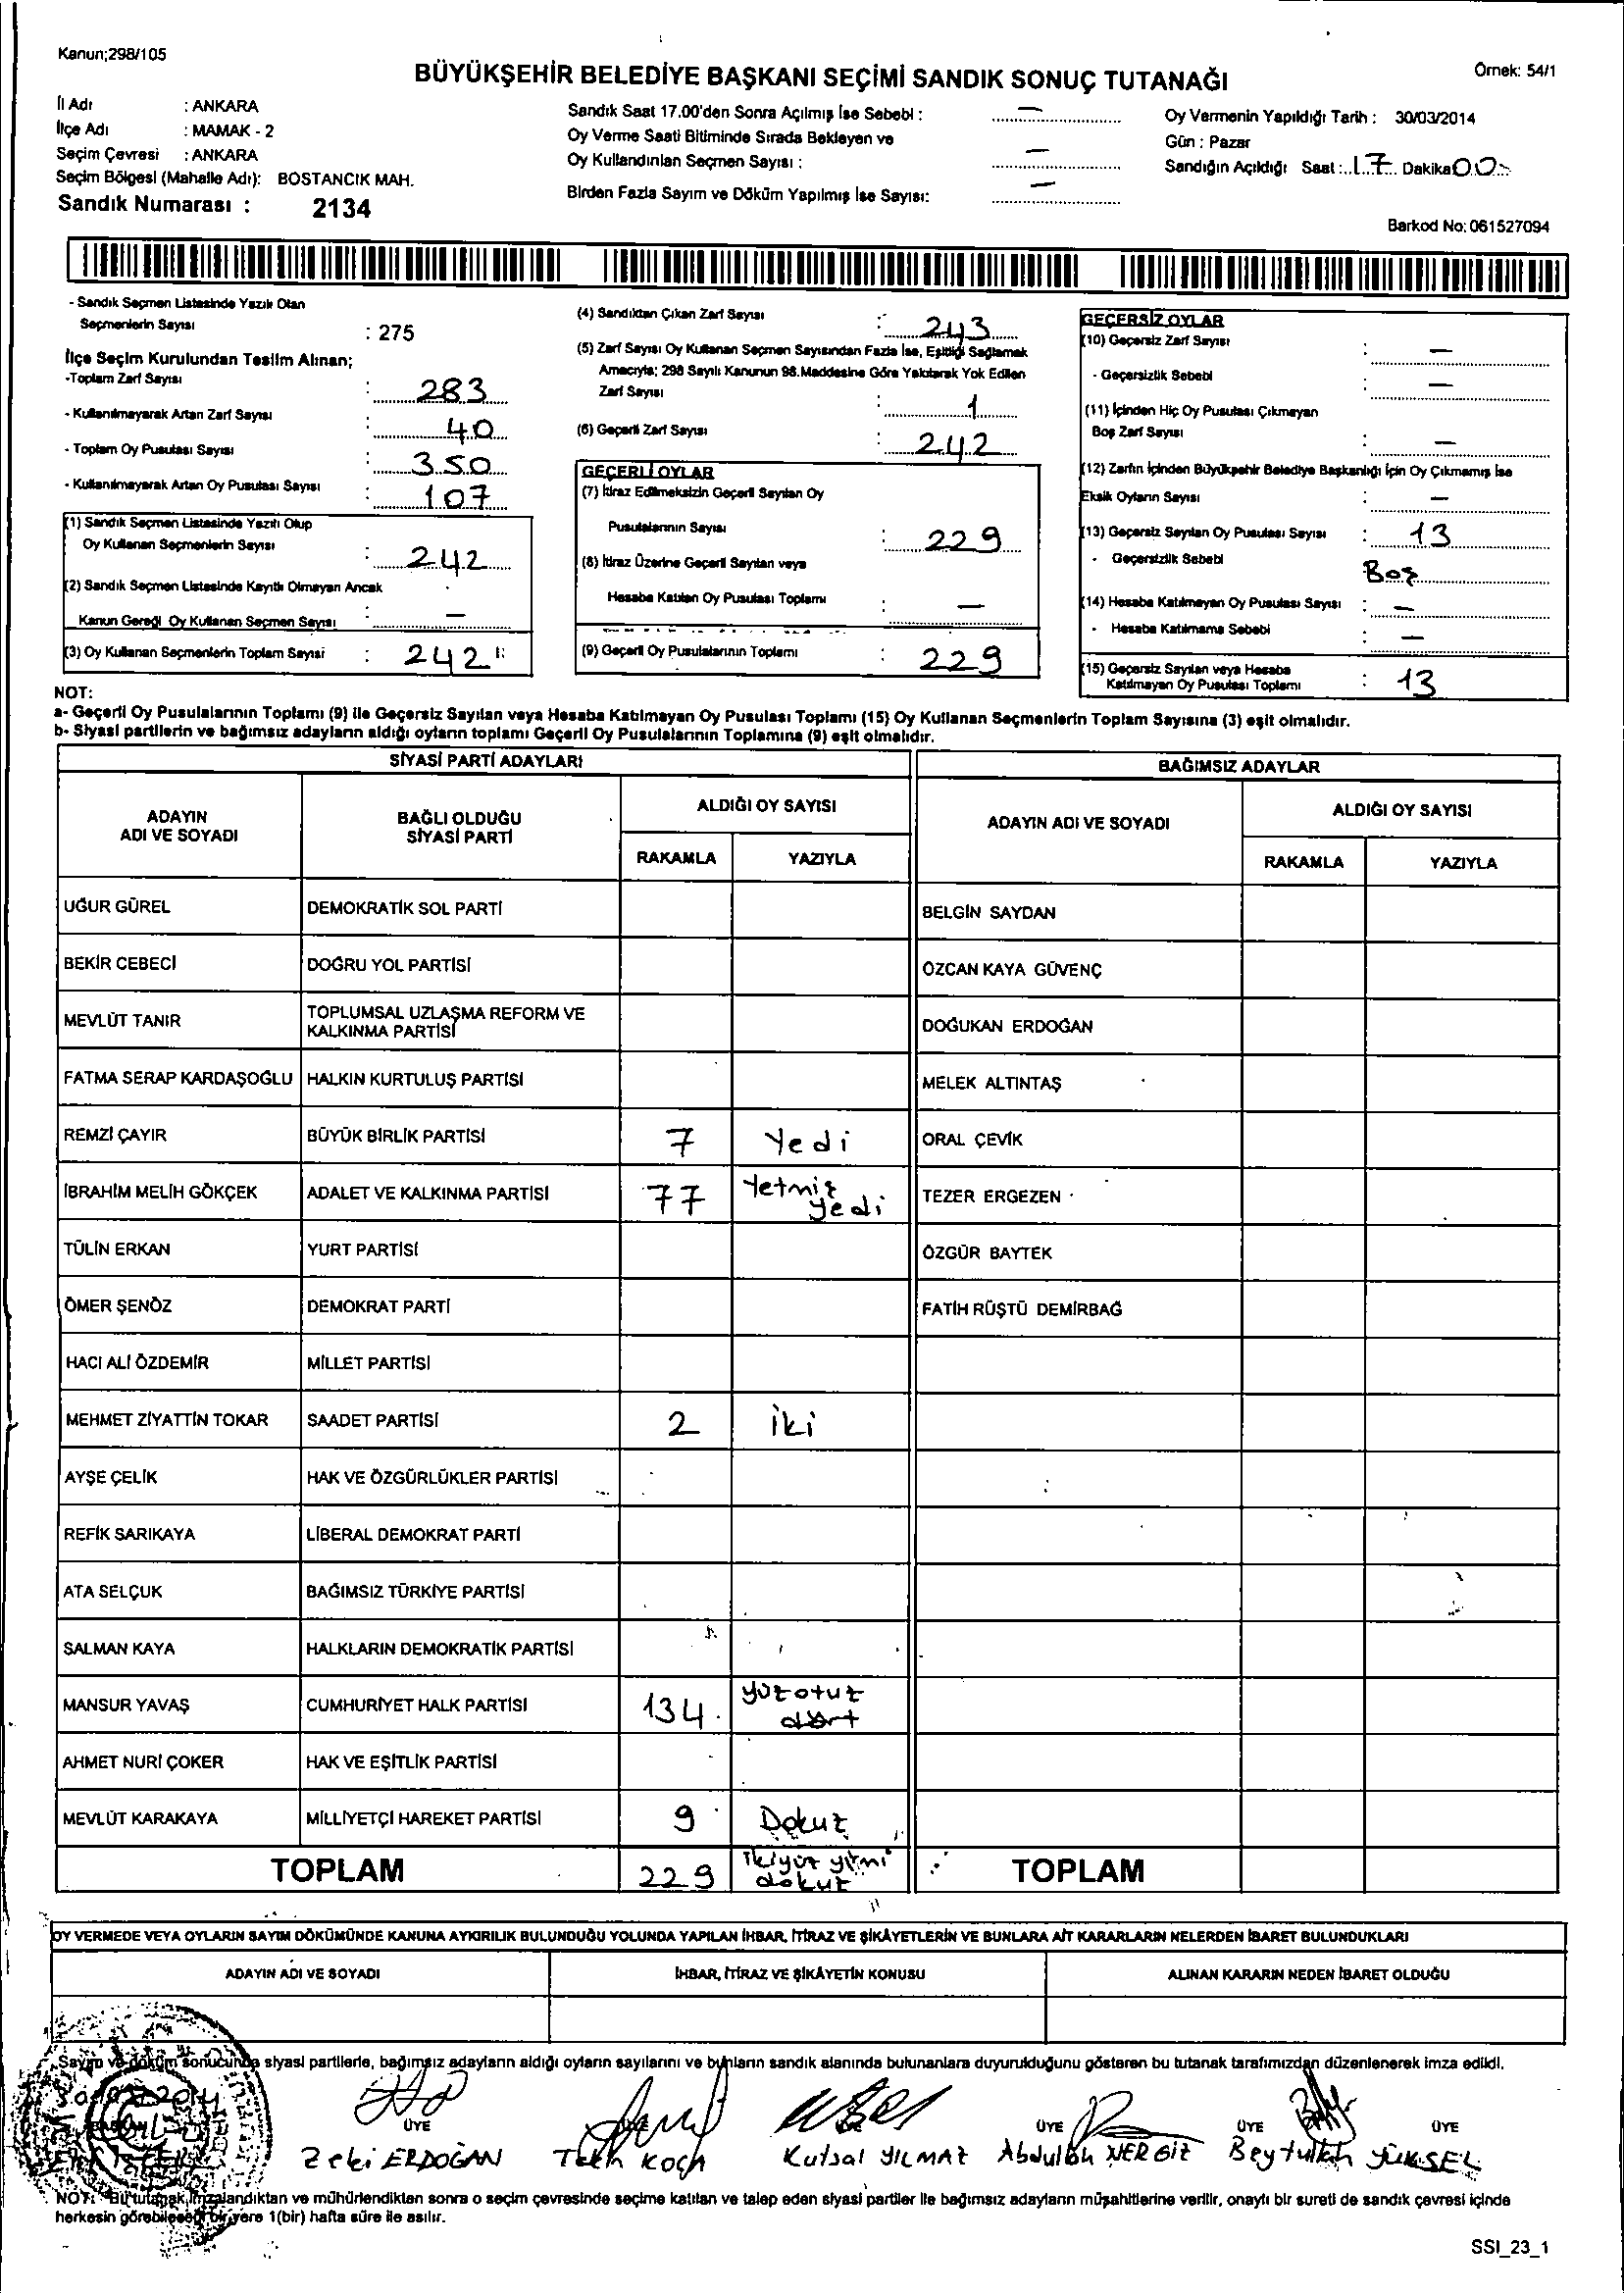 Kanun;298/105
BÜYÜKŞEHİR BELEDİYE BAŞKANI SEÇİMİ SANDIK SONUÇ TUTANAĞI
Örnek: 54/1
İl Adı : ANKARA
İlçe Adı : MAMAK - 2
Seçim Çevresi : ANKARA
Seçim Bölgesi (Mahalle Adı): BOSTANCIK MAH.
Sandık Numarası : 2134
Sandık Saat 17.00'den Sonra Açılmış İse Sebebi : —
Oy Verme Saati Bitiminde Sırada Bekleyen ve
Oy Kullandırılan Seçmen Sayısı : —
Birden Fazla Sayım ve Döküm Yapılmış İse Sayısı: —
Oy Vermenin Yapıldığı Tarih : 30/03/2014
Gün : Pazar
Sandığın Açıldığı Saat : 17 Dakika 00
Barkod No: 061527094
- Sandık Seçmen Listesinde Yazılı Olan
Seçmenlerin Sayısı : 275
İlçe Seçim Kurulundan Teslim Alınan;
-Toplam Zarf Sayısı : 283
- Kullanılmayarak Artan Zarf Sayısı : 40
- Toplam Oy Pusulası Sayısı : 350
- Kullanılmayarak Artan Oy Pusulası Sayısı : 107
(1) Sandık Seçmen Listesinde Yazılı Olup
Oy Kullanan Seçmenlerin Sayısı : 242
(2) Sandık Seçmen Listesinde Kayıtlı Olmayan Ancak
Kanun Gereği Oy Kullanan Seçmen Sayısı : —
(3) Oy Kullanan Seçmenlerin Toplam Sayısı : 242
(4) Sandıktan Çıkan Zarf Sayısı : 243
(5) Zarf Sayısı Oy Kullanan Seçmen Sayısından Fazla İse, Eşitliği Sağlamak
Amacıyla; 298 Sayılı Kanunun 98.Maddesine Göre Yakılarak Yok Edilen
Zarf Sayısı : 1
(6) Geçerli Zarf Sayısı : 242
GEÇERLİ OYLAR
(7) İtiraz Edilmeksizin Geçerli Sayılan Oy
Pusulalarının Sayısı : 229
(8) İtiraz Üzerine Geçerli Sayılan veya
Hesaba Katılan Oy Pusulası Toplamı : —
(9) Geçerli Oy Pusulalarının Toplamı : 229
GEÇERSİZ OYLAR
(10) Geçersiz Zarf Sayısı : —
- Geçersizlik Sebebi : —
(11) İçinden Hiç Oy Pusulası Çıkmayan
Boş Zarf Sayısı : —
(12) Zarfın İçinden Büyükşehir Belediye Başkanlığı İçin Oy Çıkmamış İse
Eksik Oyların Sayısı : —
(13) Geçersiz Sayılan Oy Pusulası Sayısı : 13
- Geçersizlik Sebebi Boş
(14) Hesaba Katılmayan Oy Pusulası Sayısı : —
- Hesaba Katılmama Sebebi : —
(15) Geçersiz Sayılan veya Hesaba
Katılmayan Oy Pusulası Toplamı : 13
NOT:
a- Geçerli Oy Pusulalarının Toplamı (9) ile Geçersiz Sayılan veya Hesaba Katılmayan Oy Pusulası Toplamı (15) Oy Kullanan Seçmenlerin Toplam Sayısına (3) eşit olmalıdır.
b- Siyasi partilerin ve bağımsız adayların aldığı oyların toplamı Geçerli Oy Pusulalarının Toplamına (9) eşit olmalıdır.
SİYASİ PARTİ ADAYLARI
BAĞIMSIZ ADAYLAR
ADAYIN
ADI VE SOYADI
BAĞLI OLDUĞU
SİYASİ PARTİ
ALDIĞI OY SAYISI
RAKAMLA YAZIYLA
ADAYIN ADI VE SOYADI
ALDIĞI OY SAYISI
RAKAMLA YAZIYLA
UĞUR GÜREL DEMOKRATİK SOL PARTİ BELGİN SAYDAN
BEKİR CEBECİ DOĞRU YOL PARTİSİ ÖZCAN KAYA GÜVENÇ
MEVLÜT TANIR TOPLUMSAL UZLAŞMA REFORM VE
KALKINMA PARTİSİ DOĞUKAN ERDOĞAN
FATMA SERAP KARDAŞOĞLU HALKIN KURTULUŞ PARTİSİ MELEK ALTINTAŞ
REMZİ ÇAYIR BÜYÜK BİRLİK PARTİSİ 7 Yedi ORAL ÇEVİK
İBRAHİM MELİH GÖKÇEK ADALET VE KALKINMA PARTİSİ 77 Yetmiş
yedi TEZER ERGEZEN
TÜLİN ERKAN YURT PARTİSİ ÖZGÜR BAYTEK
ÖMER ŞENÖZ DEMOKRAT PARTİ FATİH RÜŞTÜ DEMİRBAĞ
HACI ALİ ÖZDEMİR MİLLET PARTİSİ
MEHMET ZİYATTİN TOKAR SAADET PARTİSİ 2 iki
AYŞE ÇELİK HAK VE ÖZGÜRLÜKLER PARTİSİ
REFİK SARIKAYA LİBERAL DEMOKRAT PARTİ
ATA SELÇUK BAĞIMSIZ TÜRKİYE PARTİSİ
SALMAN KAYA HALKLARIN DEMOKRATİK PARTİSİ
MANSUR YAVAŞ CUMHURİYET HALK PARTİSİ 134 yüzotuz
dört
AHMET NURİ ÇOKER HAK VE EŞİTLİK PARTİSİ
MEVLÜT KARAKAYA MİLLİYETÇİ HAREKET PARTİSİ 9 Dokuz
TOPLAM 229 ikiyüz yirmi
dokuz TOPLAM
OY VERMEDE VEYA OYLARIN SAYIM DÖKÜMÜNDE KANUNA AYKIRILIK BULUNDUĞU YOLUNDA YAPILAN İHBAR, İTİRAZ VE ŞİKÂYETLERİN VE BUNLARA AİT KARARLARIN NELERDEN İBARET BULUNDUKLARI
ADAYIN ADI VE SOYADI İHBAR, İTİRAZ VE ŞİKÂYETİN KONUSU ALINAN KARARIN NEDEN İBARET OLDUĞU
Sayım ve döküm sonucunda siyasi partilerle, bağımsız adayların aldığı oyların sayılarını ve bunların sandık alanında bulunanlara duyurulduğunu gösteren bu tutanak tarafımızdan düzenlenerek imza edildi.
ÜYE ÜYE ÜYE ÜYE
Zeki ERDOĞAN KOÇ Kutsal YILMAZ Abdullah NERGİZ Beytullah YÜKSEL
NOT: Bu tutanak imzalandıktan ve mühürlendikten sonra o seçim çevresinde seçime katılan ve talep eden siyasi partiler ile bağımsız adayların müşahitlerine verilir, onaylı bir sureti de sandık çevresi içinde
herkesin görebileceği bir yere 1(bir) hafta süre ile asılır.
SSI_23_1